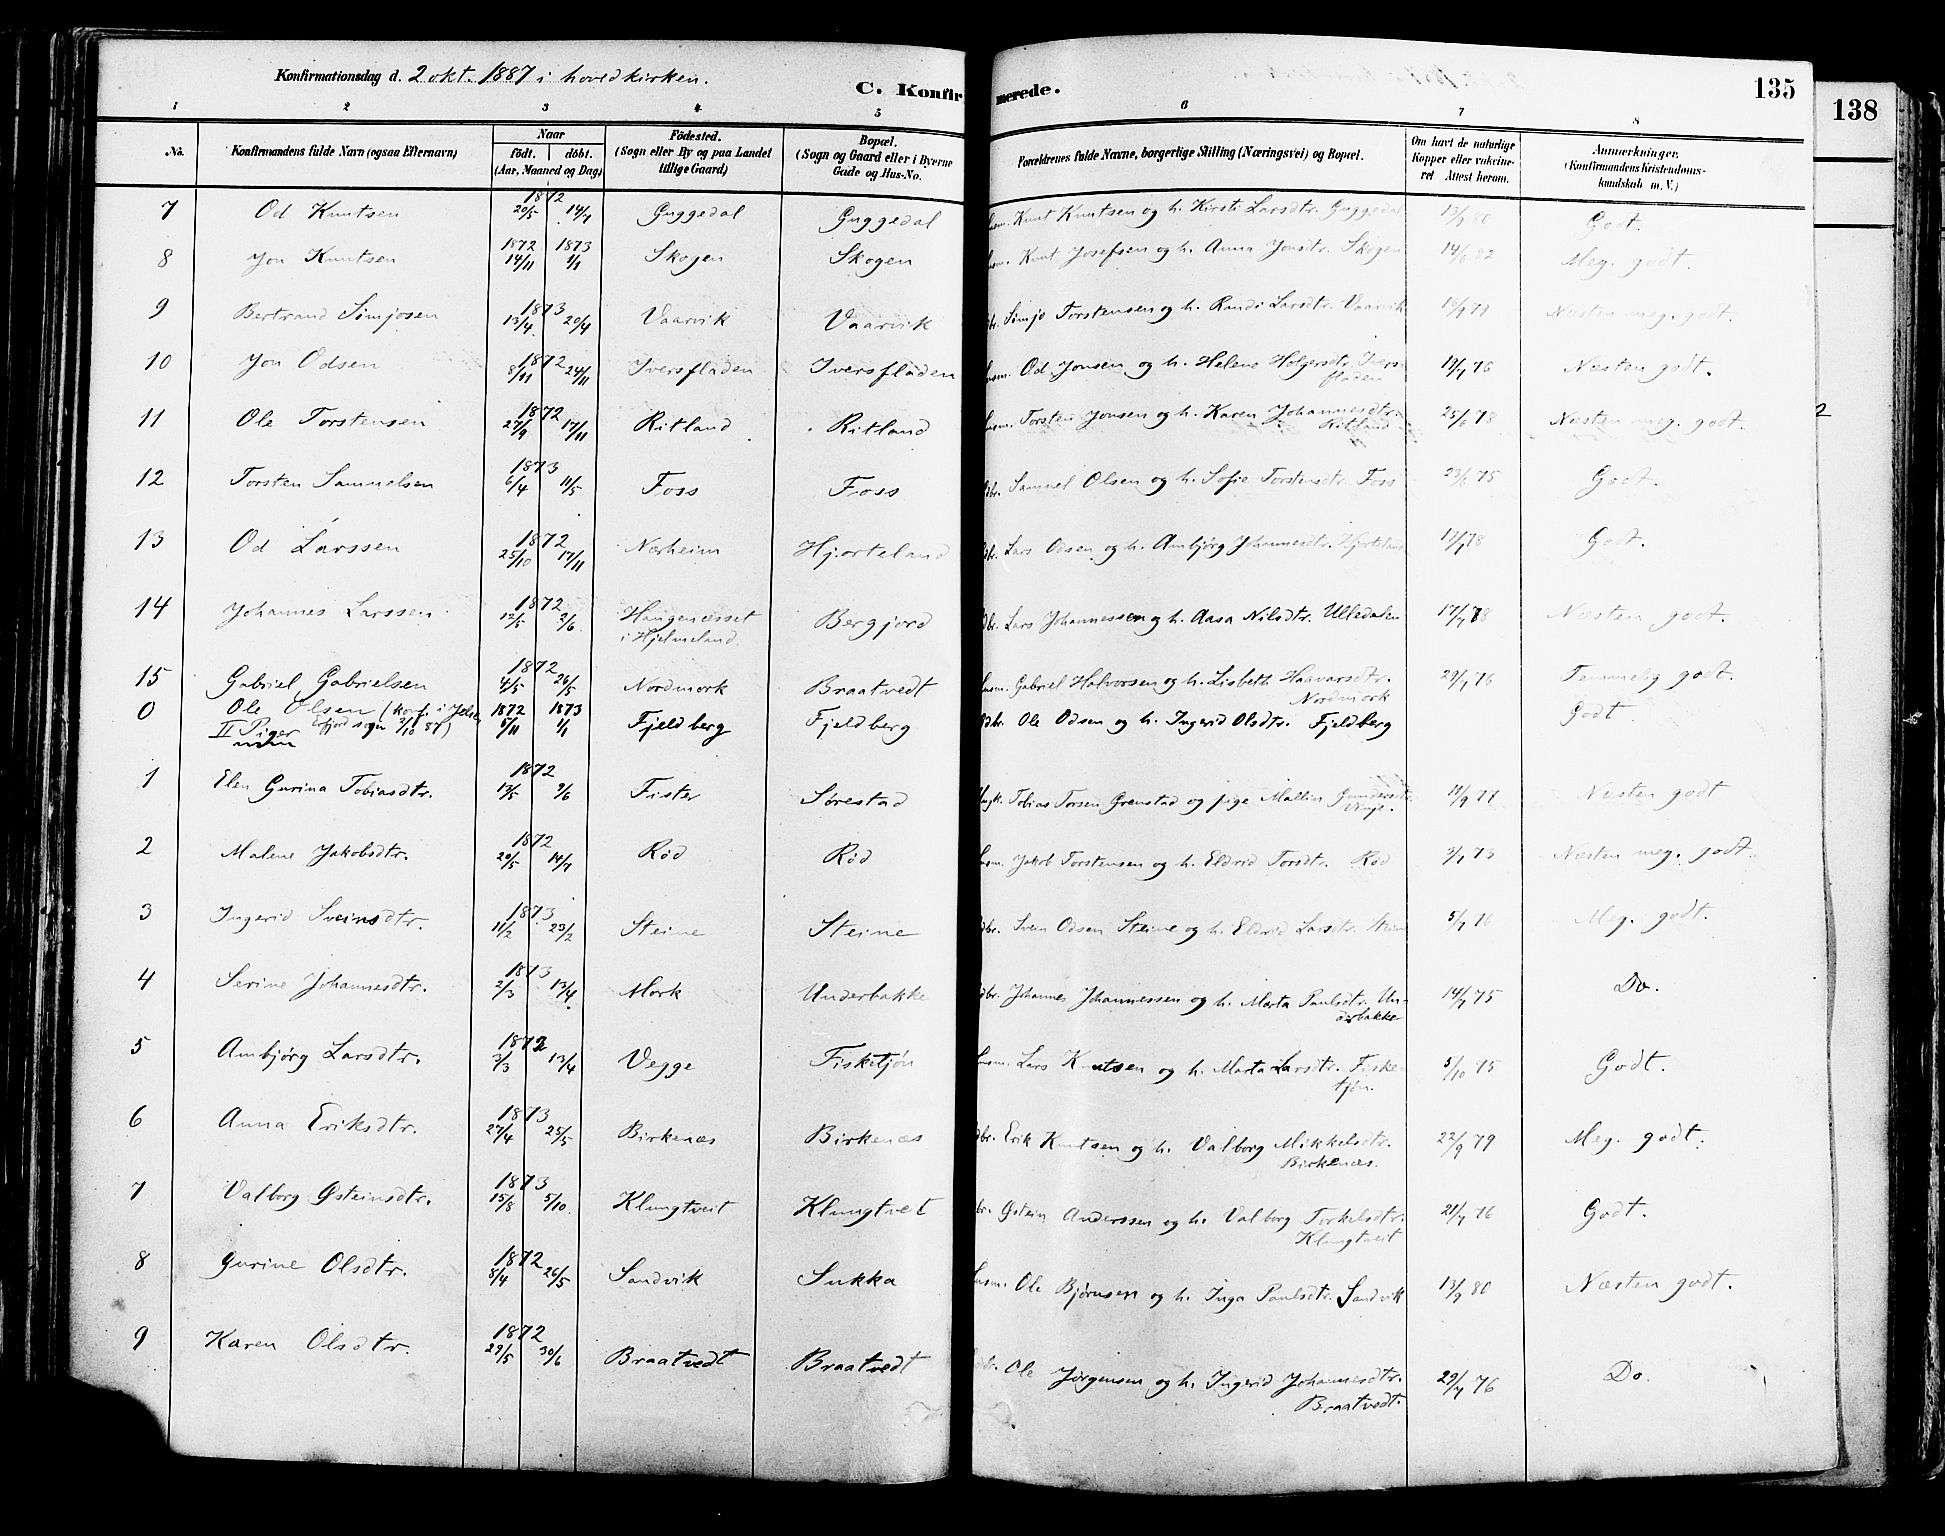 Konfirmationsdag d. 2 okt. 1887 i hovedkirken.
C. Konfirmerede.
135
138
1 2 3 4 5 6 7 8
No.
Konfirmandens fulde Navn (ogsaa Efternavn)
Naar
födt. döbt.
(Aar, Maaned og Dag)
Födested.
(Sogn eller By og paa Landet tillige Gaard)
Bopæl.
(Sogn og Gaard eller i Byerne Gade og Hus-No.
Forældrenes fulde Navne, borgerlige Stilling (Næringsvei) og Bopæl.
Om havt de naturlige Kopper eller vakcineret Attest herom.
Anmærkninger.
(Konfirmandens Kristendomskundskab m. V.)
7 Od Knutsen 1872 20/5 14/7 Guggedal Guggedal usm. Knut Knutsen og h. Kirsti Larsdtr. Guggedal 13/9 80 Godt.
8 Jon Knutsen 1872 14/11 1873 1/1 Skogen Skogen usm. Knut Josefsen og h. Anna Jonsdtr. Skogen 14/6 82 Meg. godt.
9 Bertrand Simjosen 1873 13/4 20/4 Vaarvik Vaarvik dbr. Simjo Torstensen og h. Randi Larsdtr. Vaarvik 79 Næsten meg. godt.
10 Jon Odsen 1872 8/11 24/11 Iversfladen Iversfladen usm. Od Jonsen og h. Helene Holgersdtr. Iversfladen 19/7 76 Næsten godt.
11 Ole Torstensen 1872 27/9 17/11 Ritland Ritland usm. Torsten Jonsen og h. Karen Johannesdtr. Ritland 25/6 78 Næsten meg. godt.
12 Torsten Samuelsen 1873 6/4 11/5 Foss Foss dbr. Samuel Olsen og h. Sofie Torstensdtr. Foss 23/6 75 Godt.
13 Od Larssen 1872 25/10 17/11 Nærheim Hjorteland dbr. Lars Odsen og h. Ambjørg Johannesdtr. Hjorteland 17/7 78 Godt.
14 Johannes Larssen 1872 12/5 2/6 Haugenæsset i Hjelmeland Bergjord dbr. Lars Johannessen og h. Aasa Nilsdtr. Ulledalen 17/7 78 Næsten godt.
15 Gabriel Gabrielsen 1872 4/5 26/5 Nordmork Braatvedt usm. Gabriel Halvorsen og h. Lisbeth Haavarsdtr. Nordmork 29/7 76 Temmelig godt.
0 Ole Olsen (konf. i Jelse Erfjord sogn 2/10 87) 1872 5/11 1873 1/1 Fjeldberg Fjeldberg dbr. Ole Odsen og h. Ingerid Olsdtr. Fjeldberg Godt
II Piger
1 Elen Gurina Tobiasdtr. 1872 13/5 9/6 Fister Sørestad Ungk. Tobias Torsen Grenstad og pige Mallin Gundersdtr. Vinje. 19/9 77 Næsten godt
2 Malene Jakobsdtr. 1872 20/5 14/7 Rød Rød usm. Jakob Torstensen og h. Eldrid Torsdtr. Rød 3/7 73 Næsten meg. godt.
3 Ingerid Sveinsdtr. 1873 11/2 23/2 Steine Steine dbr. Svein Odsen Steine og h. Eldrid Larsdtr. Steine 5/7 76 Meg. godt.
4 Serine Johannesdtr. 1873 2/3 13/4 Mork Underbakke dbr. Johannes Johannessen og h. Marta Paulsdtr. Underbakke 14/7 75 Do.
5 Ambjørg Larsdtr. 1872 3/3 13/4 Vegge Fisketjøn usm. Lars Knutsen og h. Marta Larsdtr. Fisketjøn. 5/10 75 Godt.
6 Anna Eriksdtr. 1873 27/4 25/5 Birkenæs Birkenæs dbr. Erik Knutsen og h. Valborg Mikkelsdtr. Birkenæs. 22/9 79 Meg. godt.
7 Valborg Østeinsdtr. 1873 15/8 5/10 Klungtveit Klungtvet br. Østein Anderssen og h. Valborg Torkelsdtr. Klungtveit 21/7 76 Godt.
8 Gurine Olsdtr. 1872 8/4 26/5 Sandvik Sukka usm. Ole Bjørnsen og h. Inga Paulsdtr. Sandvik 13/9 80 Næsten godt.
9 Karen Olsdtr. 1872 29/5 30/6 Braatvedt Braatvedt br. Ole Jørgensen og h. Ingerid Johannesdtr. Braatvedt. 29/7 76 Do.